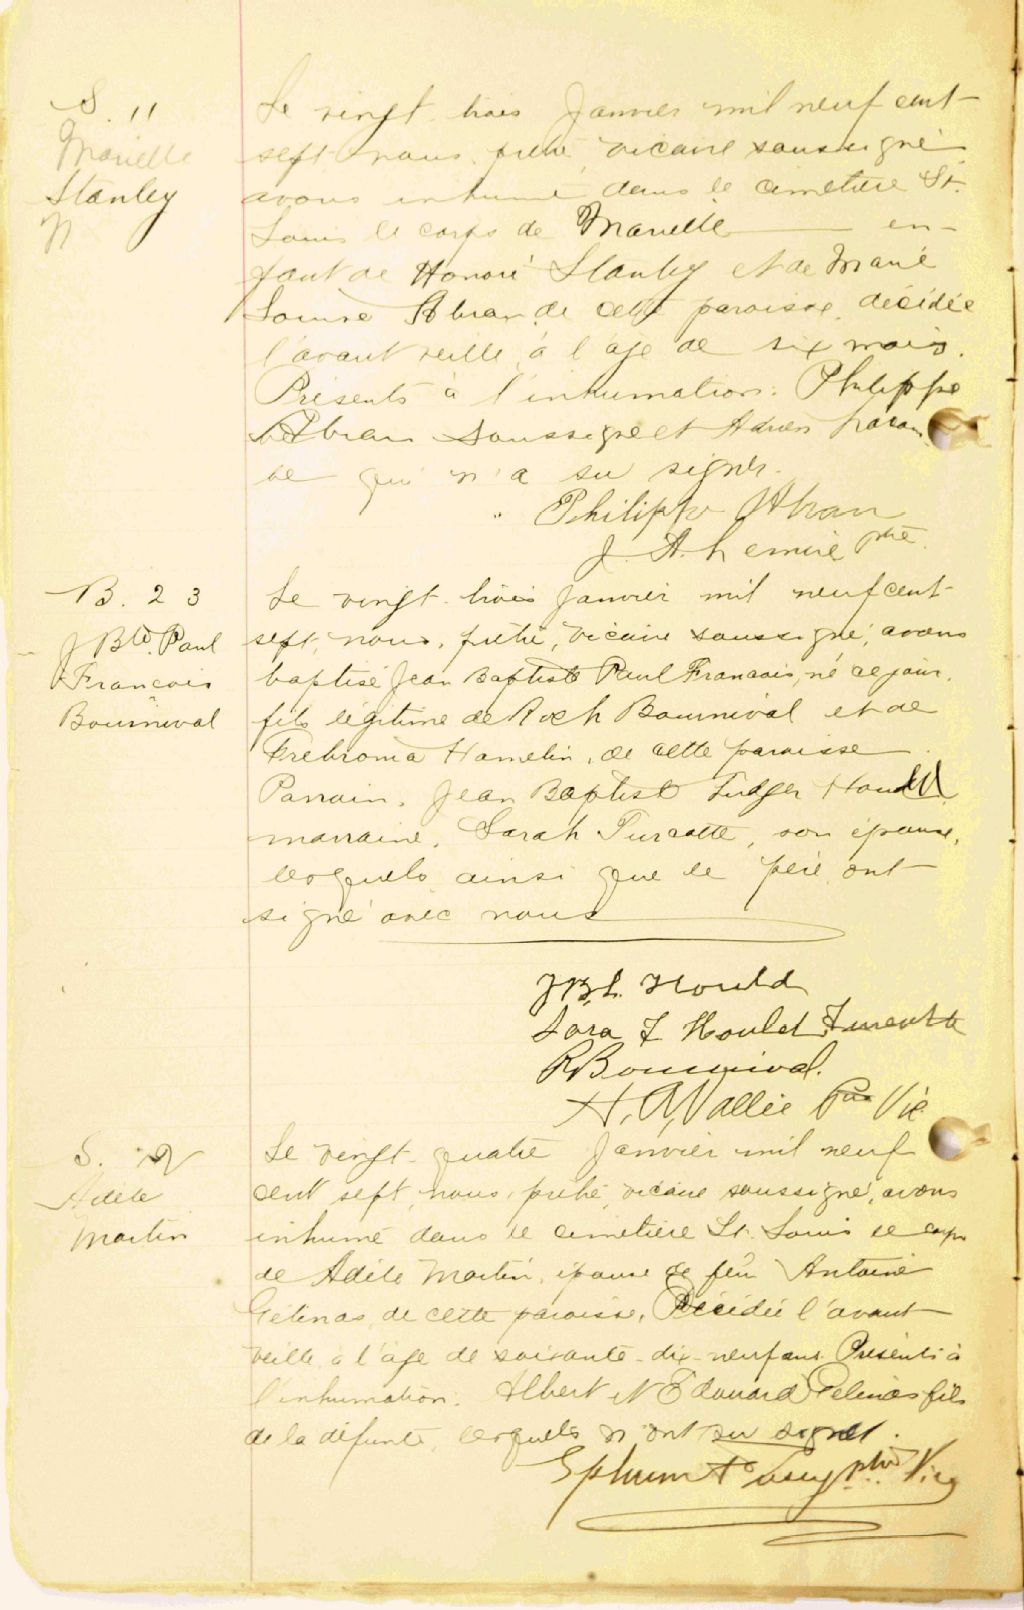 S. 11
Mariette
Stanley
N
Le vingt-trois Janvier mil neuf cent
sept nous prêtre vicaire soussigné
avons inhumé dans le cimetière St.
Louis le corps de Mariette en-
fant de Honoré Stanley et de Marie
Louise Abran de cette paroisse décédée
l'avant veille à l'age de six mois.
Présents à l'inhumation: Philippe
Abran soussigné et Adrien
be qui n'a su signer.
Philippe Abran
J. A. Lemire ptre.
B. 23
J Bte Paul
Francois
Bournival
Le vingt-trois Janvier mil neuf cent
sept, nous, prêtre, vicaire soussigné, avons
baptisé Jean Baptiste Paul Francois, né ce jour,
fils légitime de Roch Bournival et de
Frebronia Hamelin, de cette paroisse
Parrain, Jean Baptiste Ludger Hould
marraine, Sarah Turcotte, son épouse,
lesquels ainsi que le père ont
signé avec nous
J.B.L. Hould
Sara T Houle Turcotte
R Bournival.
H. A. Vallée Ptre Vic
S.
Adèle
Martin
Le vingt-quatre Janvier mil neuf
cent sept, nous, prêtre, vicaire soussigné, avons
inhumé dans le cimetière St. Louis le corps
de Adèle Martin, épouse de feu Antoine
Gélinas, de cette paroisse, Décédée l'avant
veille à l'age de soixante-dix-neuf ans. Présents à
l'inhumation: Albert et Edouard Gelinas fils
de la défunte, lesquels n'ont su signer.
ptre Vic